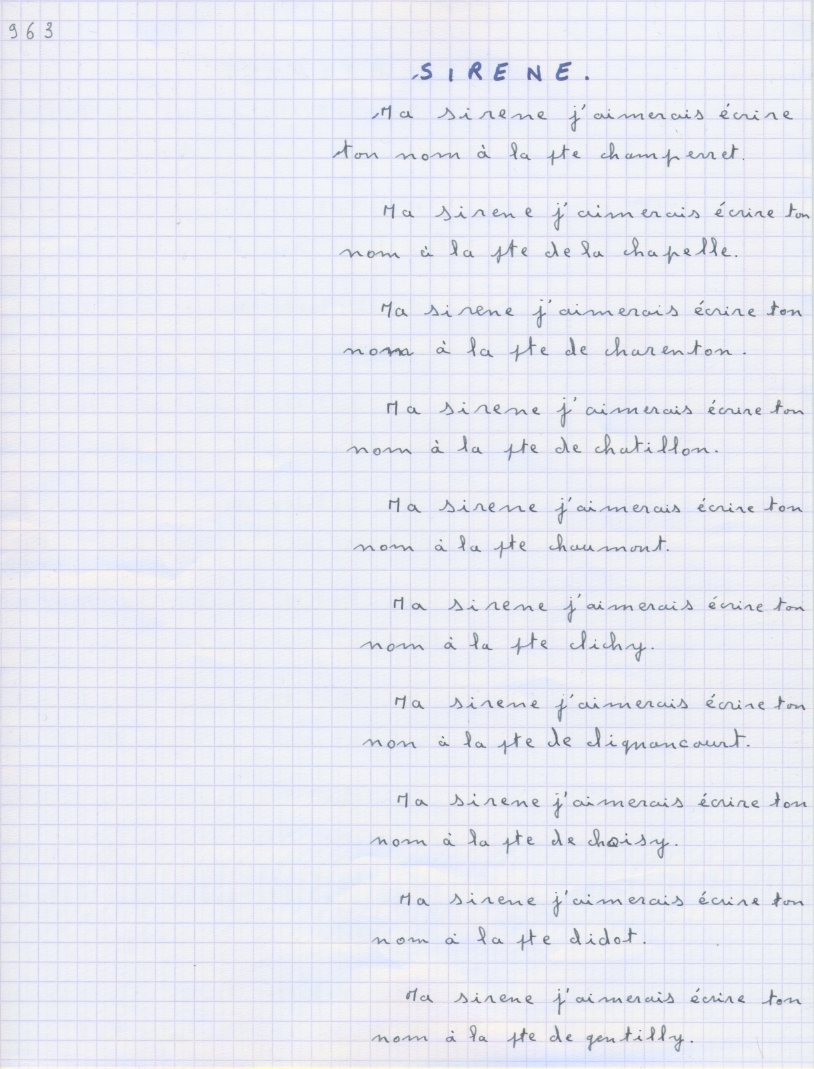 963
SIRENE.
Ma sirene j'aimerais écrire
ton nom à la pte champerret.
Ma sirene j'aimerais écrire ton
nom à la pte de la chapelle.
Ma sirene j'aimerais écrire ton
nom à la pte de charenton.
Ma sirene j'aimerais écrire ton
nom à la pte de chatillon.
Ma sirene j'aimerais écrire ton
nom à la pte chaumont.
Ma sirene j'aimerais écrire ton
nom à la pte clichy.
Ma sirene j'aimerais écrire ton
non à la pte de clignancourt.
Ma sirene j'aimerais écrire ton
nom à la pte de choisy.
Ma sirene j'aimerais écrire ton
nom à la pte didot.
Ma sirene j'aimerais écrire ton
nom à la pte de gentilly.